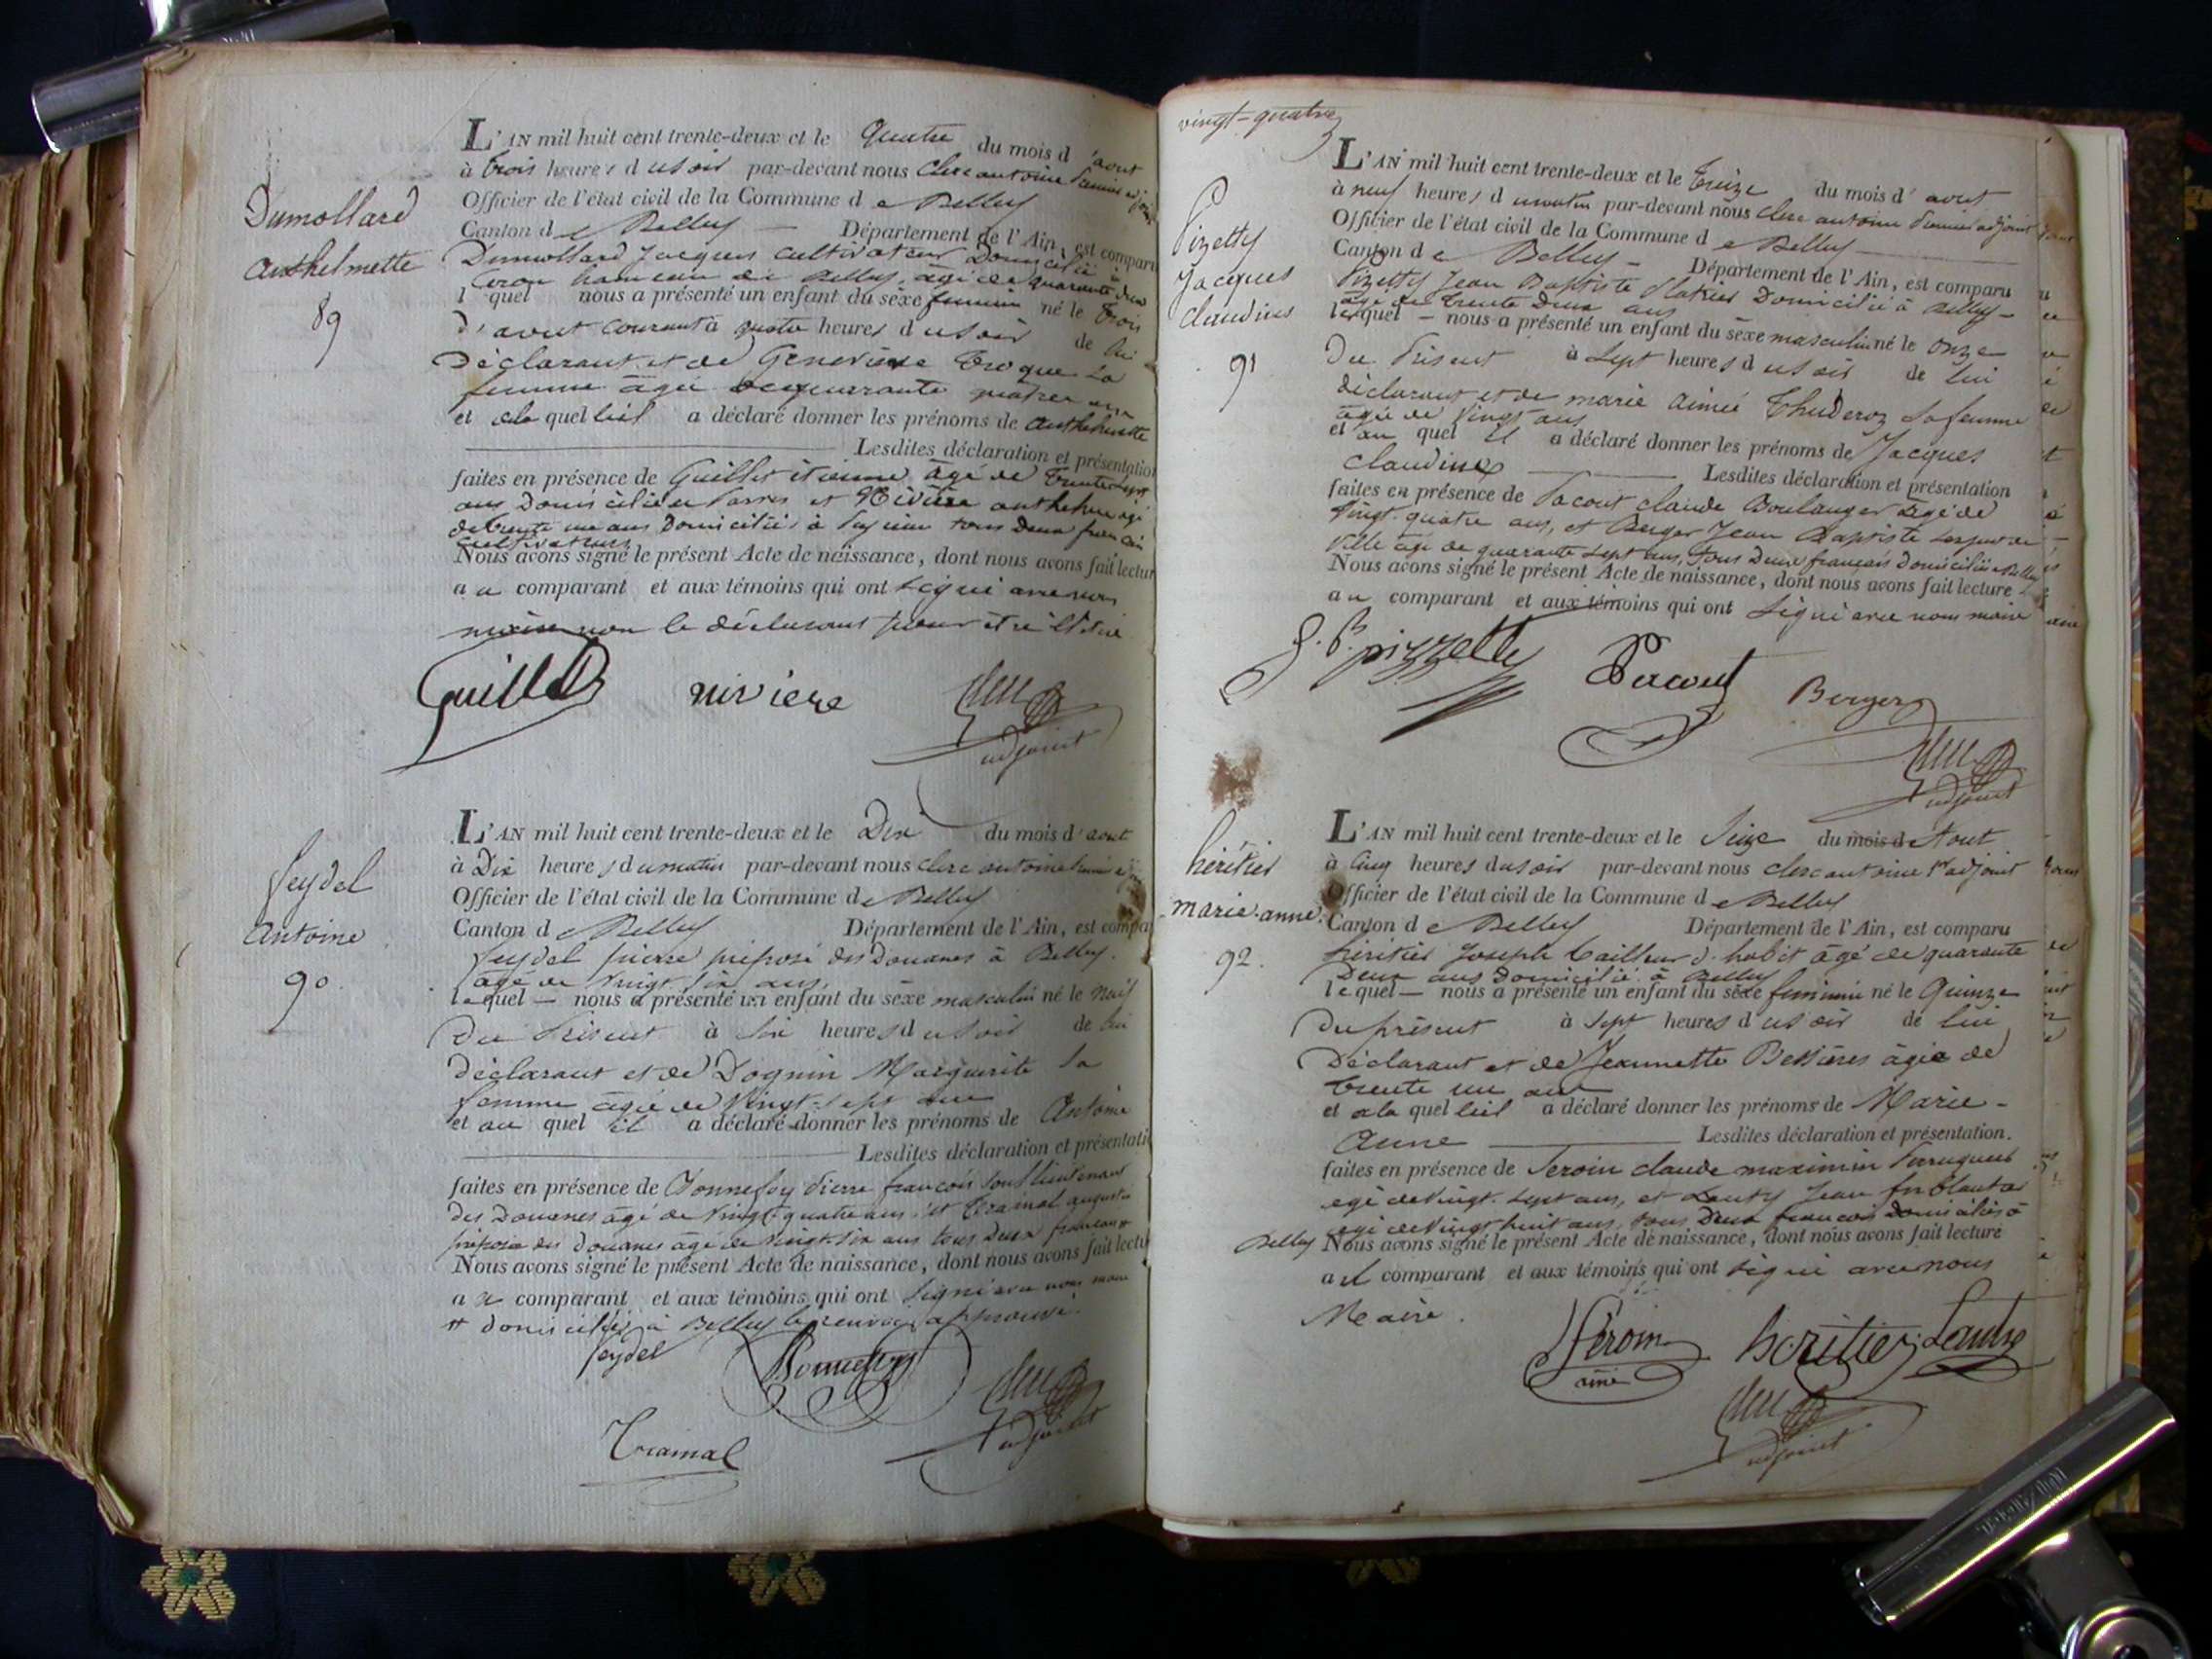 Dumollard
Anthelmette
89
L'AN mil huit cent trente-deux et le quatre du mois d'aout
à trois heures du soir par-devant nous Clerc antoine premier adjoint
Officier de l'état civil de la Commune de Belley
Canton de Belley — Département de l'Ain, est comparu
Dumollard Jacques cultivateur Domicilié à
hameau de Belley, âgé de quarante deux
l quel nous a présenté un enfant du sèxe feminin né le trois
d'aout courant à quatre heures du soir de lui
Déclarant et de Genevieve la
femme âgée de quarante quatre ans
et à la quelle il a déclaré donner les prénoms de Anthelmette
Lesdites déclaration et présentation
faites en présence de Guillet étienne âgé de trente sept
ans Domicilié à Parves et Rivière anthelme âgé
de trente un ans Domicilié à tous Deux français
cultivateurs
Nous avons signé le présent Acte de naissance, dont nous avons fait lecture
au comparant et aux témoins qui ont signé avec nous
non le déclarant pour être illétré
Guillet riviere Clerc
adjoint
Seydel
Antoine
90
L'AN mil huit cent trente-deux et le Dix du mois d'aout
à Dix heures du matin par-devant nous clerc antoine premier adjoint
Officier de l'état civil de la Commune de Belley
Canton de Belley Département de l'Ain, est comparu
Seydel pierre préposé des Douanes à Belley.
âgé de vingt six ans,
lequel — nous a présenté un enfant du sèxe masculin né le neuf
Du Présent à six heures du soir de lui
déclarant et de Dognin Marguerite sa
femme âgée de vingt-sept ans
et au quel il a déclaré donner les prénoms de Antoine
Lesdites déclaration et présentation
faites en présence de Bonnefoy Pierre françois sous lieutenant
des Douanes âgé de vingt-quatre ans, et Tramal auguste
préposé des Douanes âgé de vingt-six ans tous Deux français #
Nous avons signé le présent Acte de naissance, dont nous avons fait lecture
au comparant et aux témoins qui ont signé avec nous maire
# domiciliés à Belley le renvoi approuvé.
Seydel Bonnefoy Clerc
adjoint
Tramal
vingt-quatre
Pizetty
Jacques
claudius
91
L'AN mil huit cent trente-deux et le treize du mois d'aout
à neuf heures du matin par-devant nous clerc antoine Premier adjoint
Officier de l'état civil de la Commune de Belley
Canton de Belley — Département de l'Ain, est comparu
Pizetty Jean Baptiste Platrier Domicilié à Belley —
âgé de trente Deux ans
lequel — nous a présenté un enfant du sèxe masculin né le onze
Du Présent à sept heures du soir de lui
déclarant et de marie aimée Thuderoz sa femme
âgée de vingt ans
et au quel il a déclaré donner les prénoms de Jacques
claudius — Lesdites déclaration et présentation
faites en présence de Pacout claude Boulanger âgé de
vingt-quatre ans, et Berger Jean Baptiste sergent de
ville âgé de quarante sept ans, tous Deux français domiciliés à Belley
Nous avons signé le présent Acte de naissance, dont nous avons fait lecture
au comparant et aux témoins qui ont signé avec nous maire
J. B. pizzetty Pacout Berger
Clerc
adjoint
hérítier
marie-anne.
92.
L'AN mil huit cent trente-deux et le Seize du mois d Aout
à cinq heures du soir par-devant nous clerc antoine 1er adjoint
Officier de l'état civil de la Commune de Belley
Canton de Belley Département de l'Ain, est comparu
héritier Joseph tailleur d'habit âgé de quarante
Deux ans domicilié à Belley
lequel — nous a présenté un enfant du sèxe feminin né le Quinze
Du présent à sept heures du soir de lui
Déclarant et de Jeannette Bessières âgée de
trente un ans
et à la quelle il a déclaré donner les prénoms de Marie-
Anne — Lesdites déclaration et présentation.
faites en présence de Feroin claude maximin Perruquier
agé de vingt-sept ans, et Lautz Jean ferblantier
agé de vingt huit ans, tous Deux français domiciliés à
Belley Nous avons signé le présent Acte de naissance, dont nous avons fait lecture
au comparant et aux témoins qui ont signé avec nous
Maire.
Feroin héritier
ainé
Clerc
adjoint